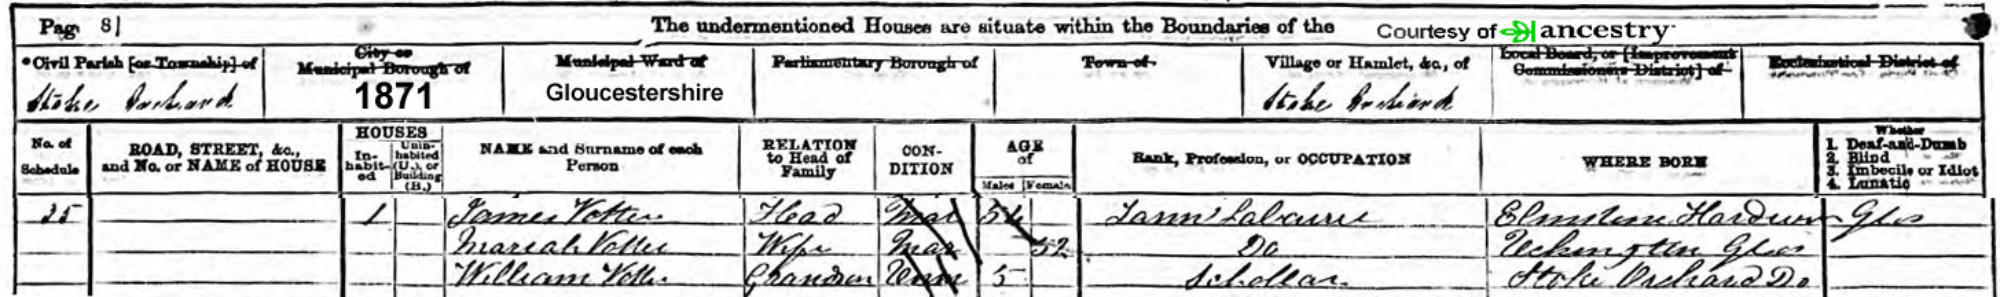 Page 8 The undermentioned Houses are situate within the Boundaries of the Courtesy of ancestry
*Civil Parish [or Township] of City or Municipal Borough of Municipal Ward of Parliamentary Borough of Town of Village or Hamlet, &c., of Local Board, or [Improvement Commissioners District] of Ecclesiastical District of
Stoke Orchard 1871 Gloucestershire Stoke Orchard
No. of Schedule ROAD, STREET, &c., and No. or NAME of HOUSE HOUSES In-habit-ed Unin-habited (U.), or Building (B.) NAME and Surname of each Person RELATION to Head of Family CON-DITION AGE of Males Females Rank, Profession, or OCCUPATION WHERE BORN Whether 1. Deaf-and-Dumb 2. Blind 3. Imbecile or Idiot 4. Lunatic
35 1 James Head Mar Labourer Elmstone Hardwick Glos
Mariah Wife Mar 52 Do Uckington Glos
William Grandson Unm 5 Schollar Stoke Orchard Do